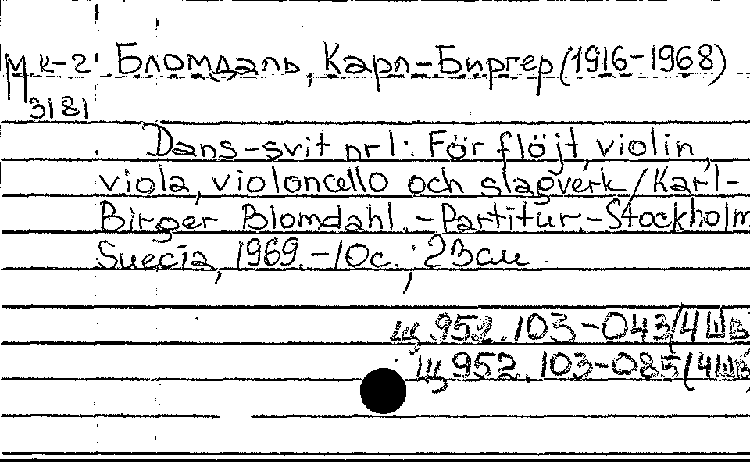 М к-2 Бломдаль, Карл-Биргер (1916-1968)
3181
Dans-svit nr1: För flöjt, violin,
viola, violoncello och slagverk / Karl-
Birger Blomdahl. - Partitur. - Stockholm
Suecia, 1969. - 10c.; 23см
Щ 952.103-043/4Шв
Щ 952.103-085/4Шв